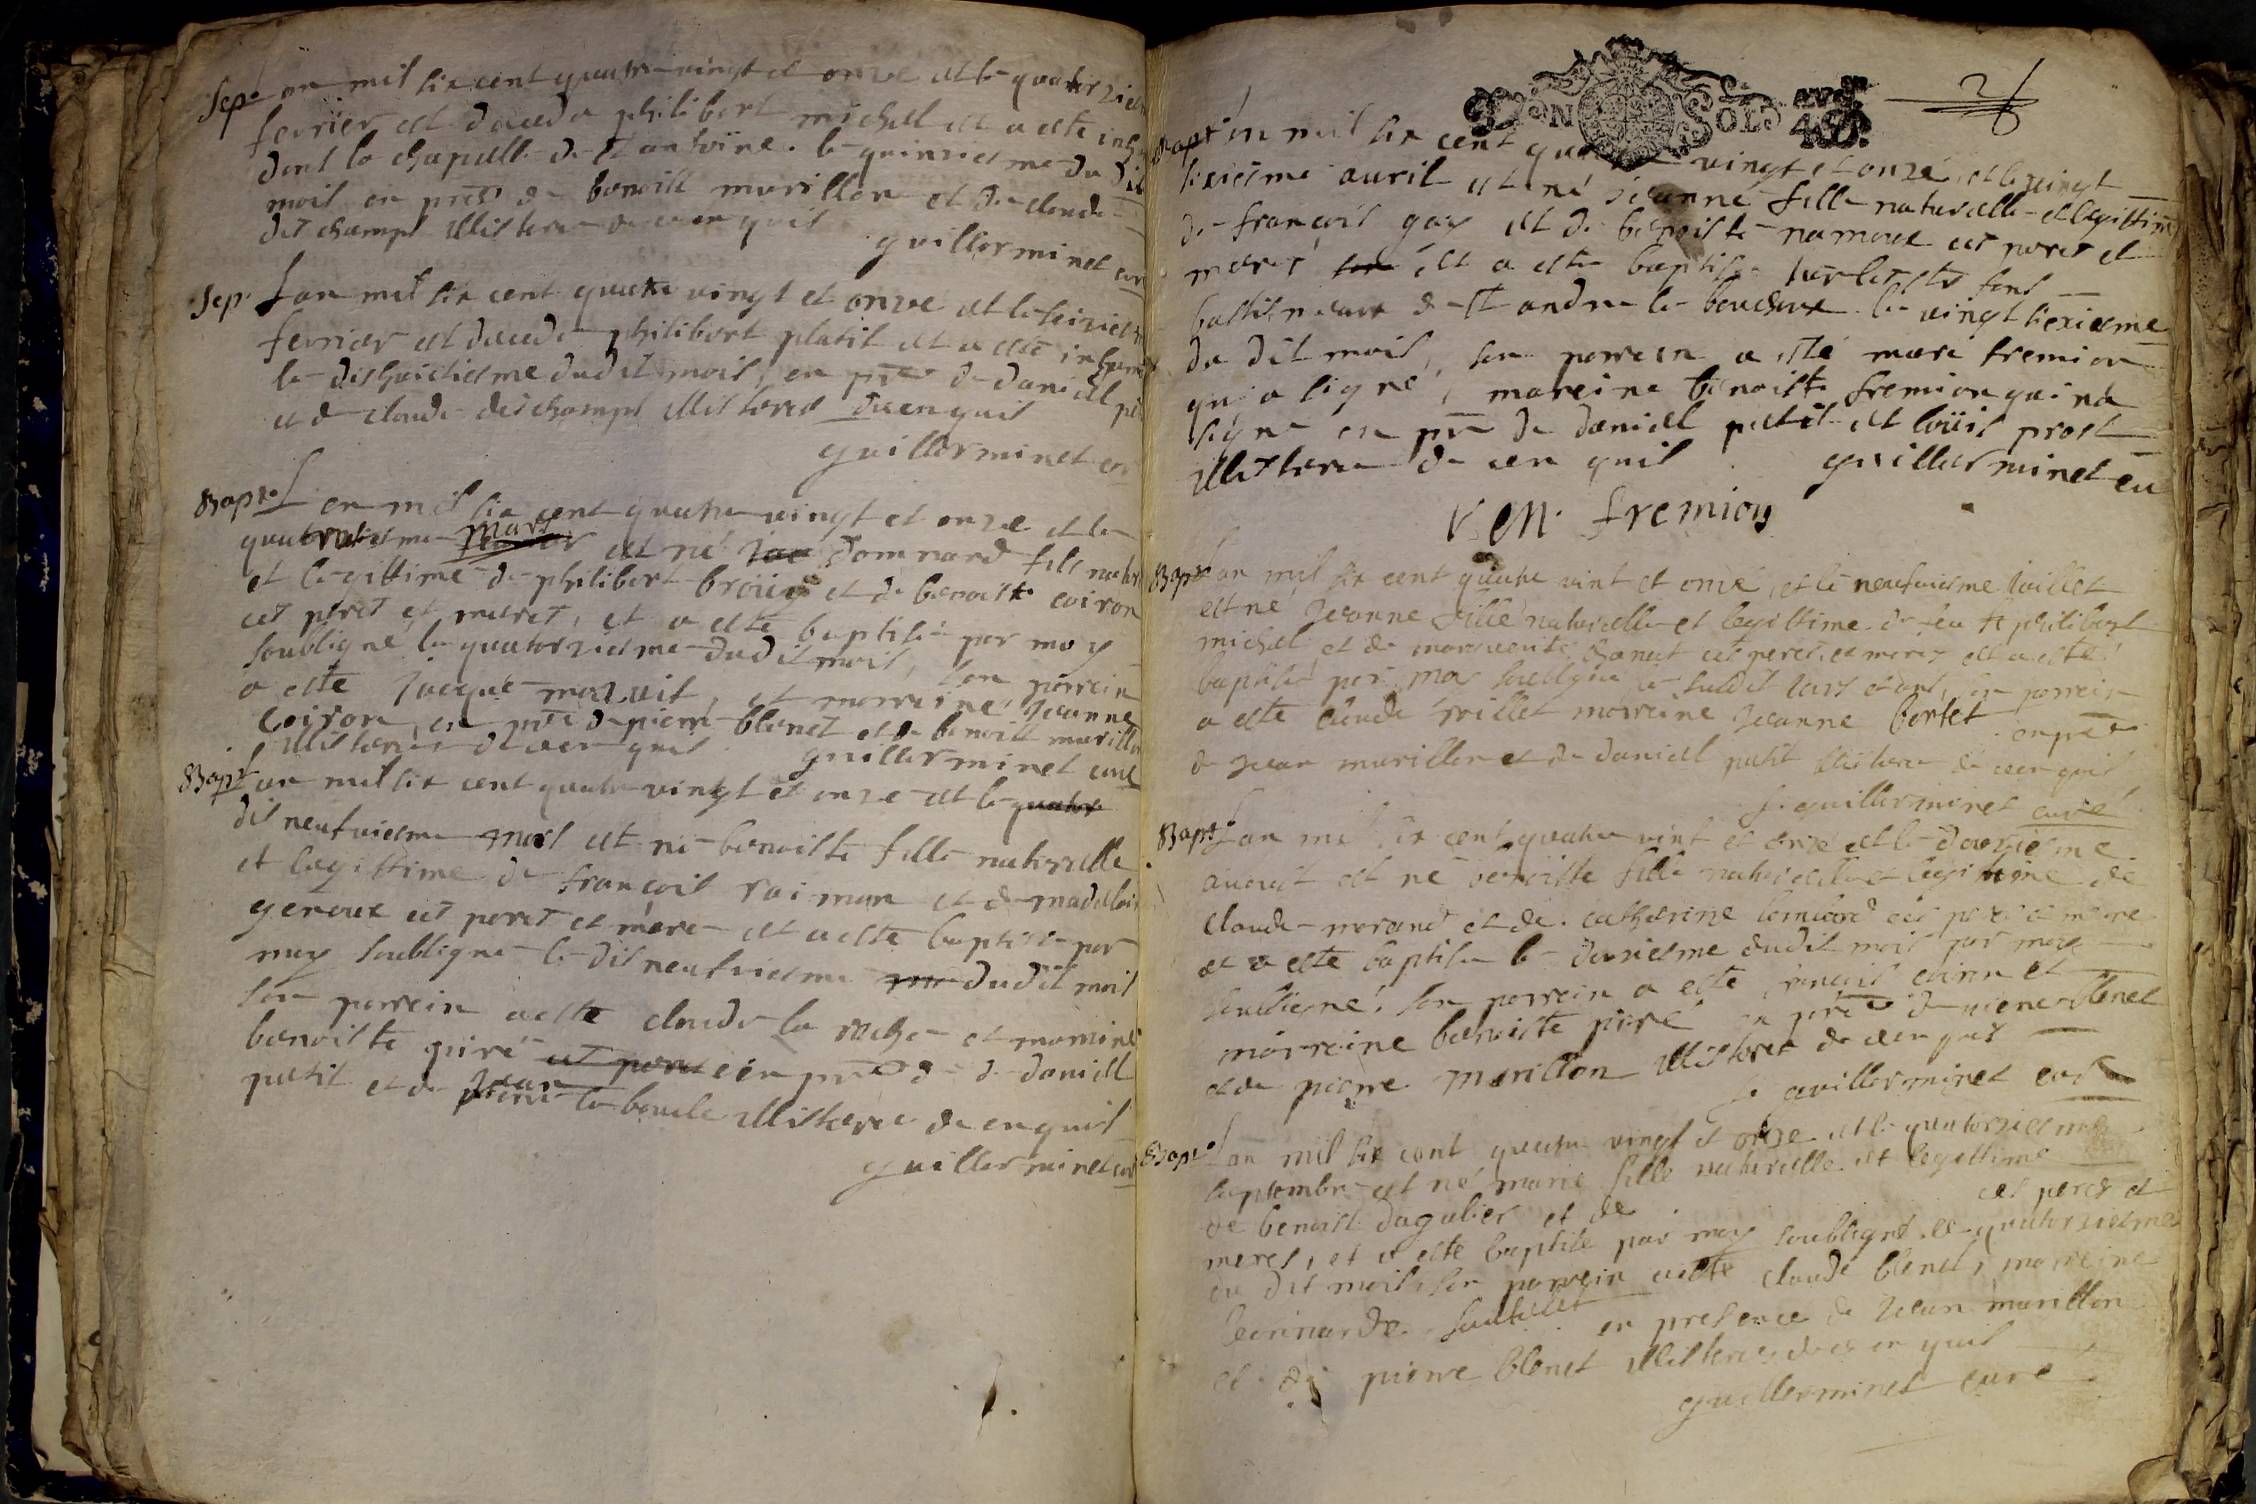 Sep.e
an mil six cent quatre vingt et onze et le quatorzies
fevrier est decedé philibert michel et a esté inhu
dans la chapelle de st antoine. le quinziesme du dit
mois en prese de benoist murillon et de claude
des champs illisteres de ce enquis
guillerminet cur
Sep.
L'an mil six cent quatre vingt et onze et le seizies
fevrier est decedé philibert platit et a esté inhumé
le dishuictiesme dudit mois, en prese de daniel pe
et de claude des champs illisteres de ce enquis
guillerminet cur
Bapt.
L'an mil six cent quatre vingt et onze et le
quatorziesme mars est né Jac Domnard fils natur
et legittime de philibert broüis et de benoiste coiron
ces peres et meres, et a esté baptisé par moy
soubsigné le quatorziesme dudit mois, son parrein
a esté Jacque mazuit, et marreine Jeanne
Coiron, en prese de pierre blenet et de benoist murillon
illisteres de ce enquis guillerminet curé
Bapt
L'an mil six cent quatre vingt et onze et le quator
dis neufviesme mars est né benoiste fille naturelle
et legittime de françois raimon et de madelai
genoux ces peres et mere et a esté baptisé par
moy soubsigné le dis neufviesme ma dudit mois
son parrein a esté claude la roche et marreine
benoiste piré et pere en prese de de daniel
petit et de Jean la boucle illisteres de ce enquis
guillerminet curé
MOYEN SOLS
2
Bapt.
L'an mil six cent quatre vingt et onze, et le vingt
sixiesme avril est né Jeanne fille naturelle et legittime
de françois gay et de benoiste namoux ces peres et
meres son est a esté baptisé sur les sts fons
battismeaux de st andré le bouchoux le vingt sixiesme
du dit mois, son parrein a esté mari fremion
qui a signé, mareine benoiste fremion qui na
signé en prese de daniel petit et loüis prost
illistere de ce enquis guillerminet cu
fremion
Bapt
L'an mil six cent quatre vint et onze, et le neufviesme Juillet
est né Jeanne fille naturelle et legittime de feu philibert
michel et de marguerite ces peres et meres et a esté
baptisé par moy soubsigné le susdit Jour et ans, son parrein
a esté claude marreine Jeanne bortet en prese
de Jean murillon et de daniel petit illistere de ce enquis
J. guillerminet curé
Bapt.
L'an mil six cent quatre vint et onze et le douziesme
avoust est né benoiste fille naturelle et legittime de
claude morand et de catherine lombard ces peres et mere
et a esté baptisé le douziesme dudit mois par moy
soubsigné, son parrein a esté françois coiron et
marreine benoiste piré en prese de pierre blenet
et de pierre murillon illisteres de ce enquis
J. guillerminet curé
Bapt.
L'an mil six cent quatre vingt et onze et le quatorziesme
septembre est né marie fille naturelle et legittime
de benoist dagalier et de ces peres et
meres, et a esté baptisé par moy soubsigné le quatorziesme
du dit mois, son parrein a esté claude blenet, marreine
leonnarde en presence de Jean murillon
et de pierre blenet illisteres de ce enquis
guillerminet curé